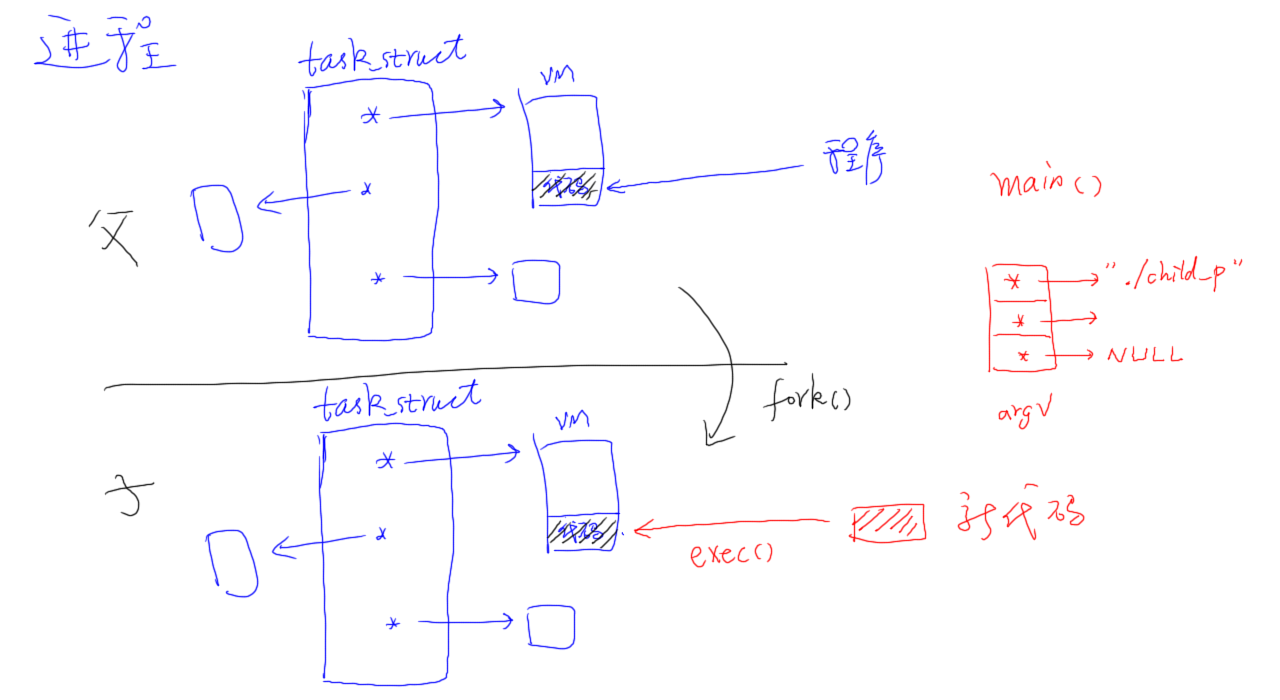 进程
task_struct
*
VM
程序
代码
*
*
父
main()
* "./child_p"
*
* NULL
argv
fork()
task_struct
*
VM
代码
*
*
子
exec()
新代码